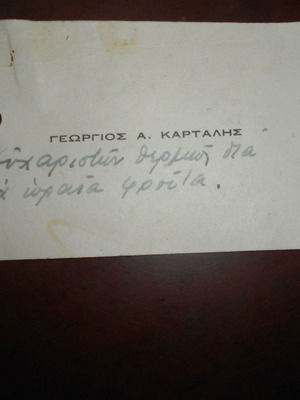 ΓΕΩΡΓΙΟΣ Α. ΚΑΡΤΑΛΗΣ
υχαριστών θερμώς διά
ά ωραία φρούτα.